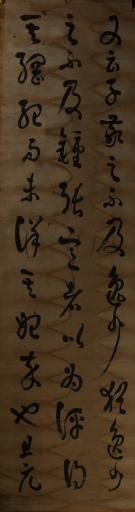 又云子敬之不及逸少猶逸少
之不及鍾張意者以為評得
其綱紀而未詳其始卒也且元